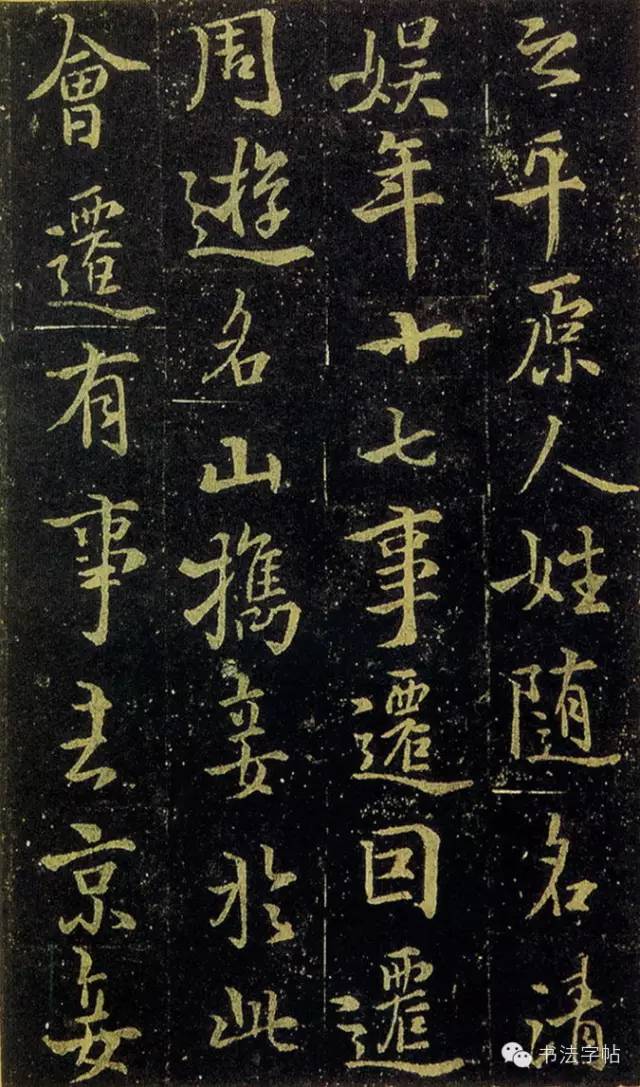 之平原人姓随名清
娱年十七事遷因遷
周遊名山携妾於此
會遷有事去京妾
书法字帖